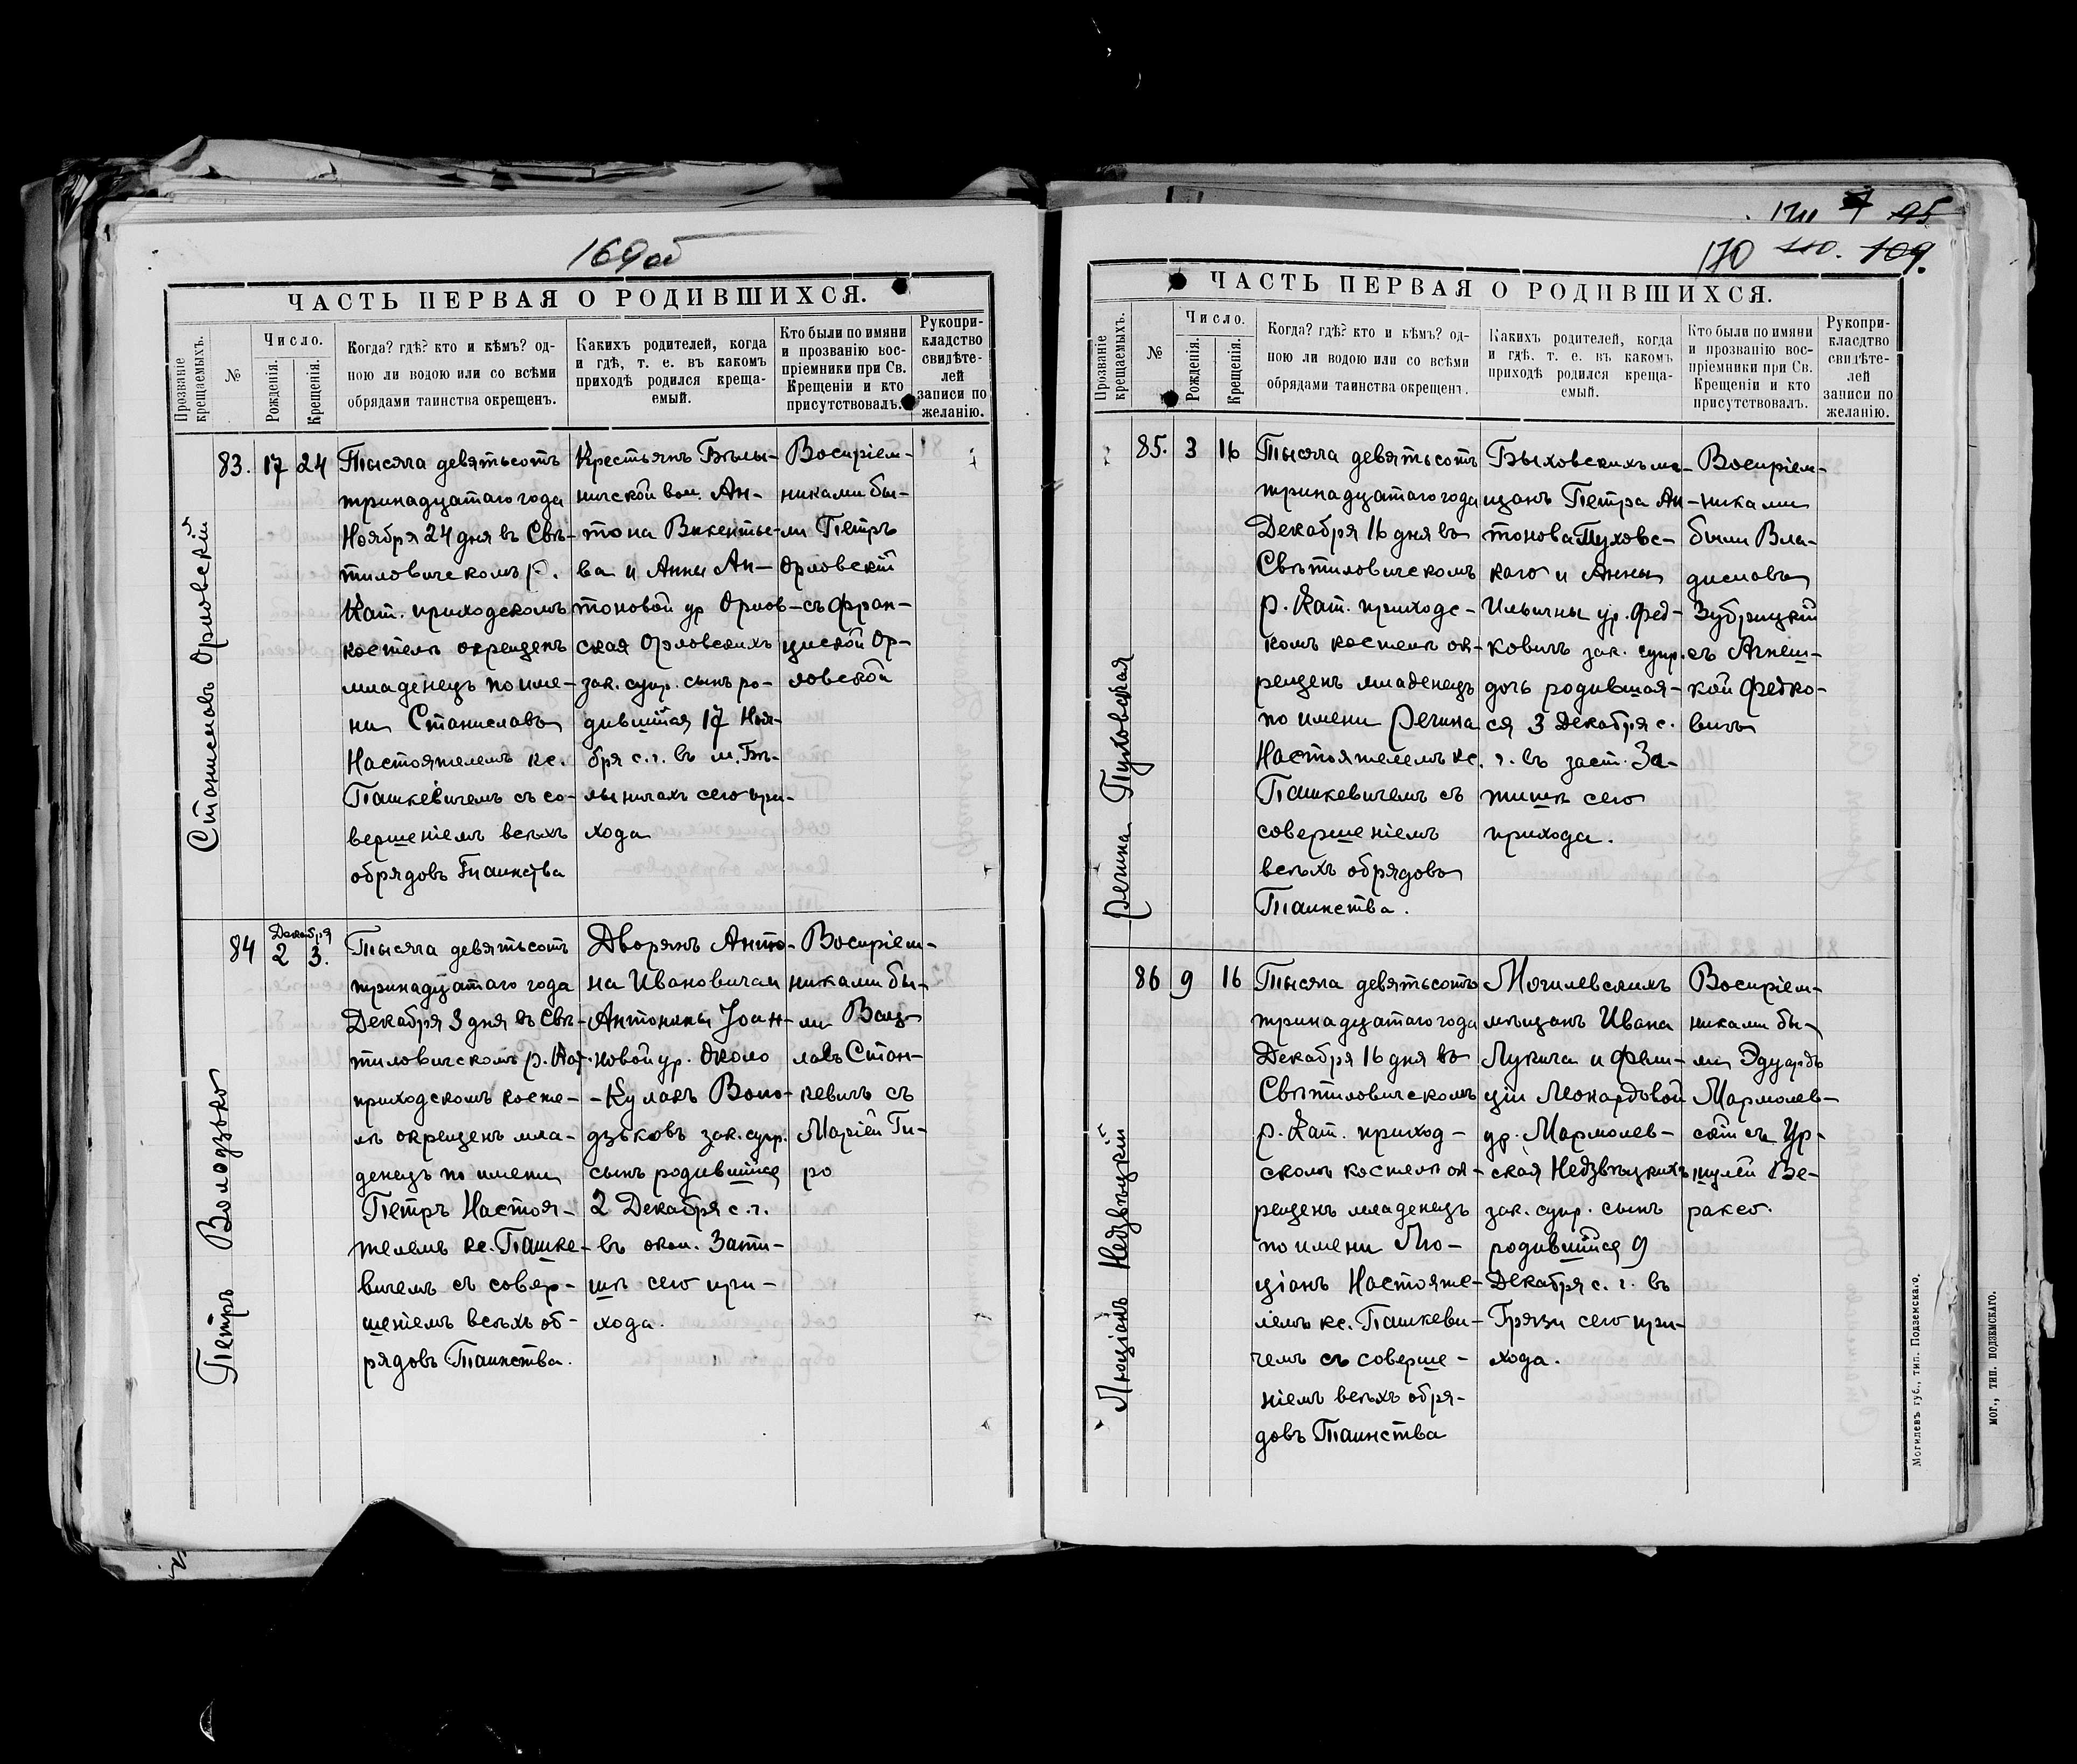 169об
ЧАСТЬ ПЕРВАЯ О РОДИВШИХСЯ.
Прозваніе крещаемыхъ.
№
Число.
Рожденія.
Крещенія.
Когда? гдѣ? кто и кѣмъ? од-
ною ли водою или со всѣми
обрядами таинства окрещенъ.
Какихъ родителей, когда
и гдѣ, т. е. въ какомъ
приходѣ родился креща-
емый.
Кто были по имяни
и прозванію вос-
пріемники при Св.
Крещеніи и кто
присутствовалъ.
Рукопри-
кладство
свидѣте-
лей
записи по
желанію.
Станиславъ Орловскій
83. 17 24
Тысяча девятьсотъ
тринадцатаго года
Ноября 24 дня въ Свѣ-
тиловическомъ р.
Кат. приходскомъ
костелѣ окрещенъ
младенецъ по име-
ни Станиславъ
Настоятелемъ кс.
Пашкевичемъ съ со-
вершеніемъ всѣхъ
обрядовъ Таинства
Крестьянъ Бѣлы-
ничской вол. Ан-
тона Викентье-
ва и Анны Ан-
тоновой ур Орлов-
ская Орловскихъ
зак. супр. сынъ ро-
дившійся 17 Ноя-
бря с.г. въ м. Бѣ-
лыничахъ сего при-
хода
Воспріем-
никами бы-
ли Петръ
Орловскій
съ Фран-
циской Ор-
ловской
Петръ Володзько
84
Декабря
2 3.
Тысяча девятьсотъ
тринадцатаго года
Декабря 3 дня въ Свѣ-
тиловическомъ р. Кат.
приходскомъ косте-
лѣ окрещенъ мла-
денецъ по имени
Петръ Настоя-
телемъ кс. Пашке-
вичемъ съ совер-
шеніемъ всѣхъ об-
рядовъ Таинства.
Дворянъ Анто-
на Ивановича и
Антонины Іоан-
новой ур. Около
-Кулакъ Воло-
дзьковъ зак. супр.
сынъ родившійся
2 Декабря с.г.
въ окол. Зати-
шѣ сего при-
хода.
Воспріем-
никами бы-
ли Вац-
лавъ Стан-
кевичъ съ
Маріей Ги-
ро
170 110. 109.
ЧАСТЬ ПЕРВАЯ О РОДИВШИХСЯ.
Прозваніе крещаемыхъ.
№
Число.
Рожденія.
Крещенія.
Когда? гдѣ? кто и кѣмъ? од-
ною ли водою или со всѣми
обрядами таинства окрещенъ.
Какихъ родителей, когда
и гдѣ, т. е. въ какомъ
приходѣ родился креща-
емый.
Кто были по имяни
и прозванію вос-
пріемники при Св.
Крещеніи и кто
присутствовалъ.
Рукопри-
класдтво
свидѣте-
лей
записи по
желанію.
Регина Пуховская
85. 3 16
Тысяча девятьсотъ
тринадцатаго года
Декабря 16 дня въ
Свѣтиловическомъ
р. Кат. приходс-
комъ костелѣ ок-
рещенъ младенецъ
по имени Регина
Настоятелемъ кс.
Пашкевичемъ съ
совершеніемъ
всѣхъ обрядовъ
Таинства.
Быховскихъ мѣ-
щанъ Петра Ан-
тонова Пуховс-
каго и Анны
Ильичны ур. Фед-
ковичъ зак. супр.
дочь родившая-
ся 3 Декабря с.
г. въ заст. За-
тишѣ сего
прихода.
Воспріем-
никами
были Вла-
диславъ
Зубрицкій
съ Агнеш-
кой Федко-
вичъ
Люціанъ Недзвѣцкій
86 9 16
Тысяча девятьсотъ
тринадцатаго года
Декабря 16 дня въ
Свѣтиловическомъ
р. Кат. приход-
скомъ костелѣ ок-
рещенъ младенецъ
по имени Лю-
ціанъ Настояте-
лемъ кс. Пашкеви-
чемъ съ соверше-
ніемъ всѣхъ обря-
довъ Таинства
Могилевскихъ
мѣщанъ Ивана
Лукича и Фели-
ціи Леонардовой
ур. Мармолев-
ская Недзвѣцкихъ
зак. супр. сынъ
родившійся 9
Декабря с. г. въ
Грязи сего при-
хода.
Воспріем-
никами бы-
ли Эдуардъ
Мармолев-
скій съ Ур-
шулей Ве-
раксо.
Могилевъ губ., тип. Подземскаго.
МОГ., ТИП. ПОДЗЕМСКАГО.